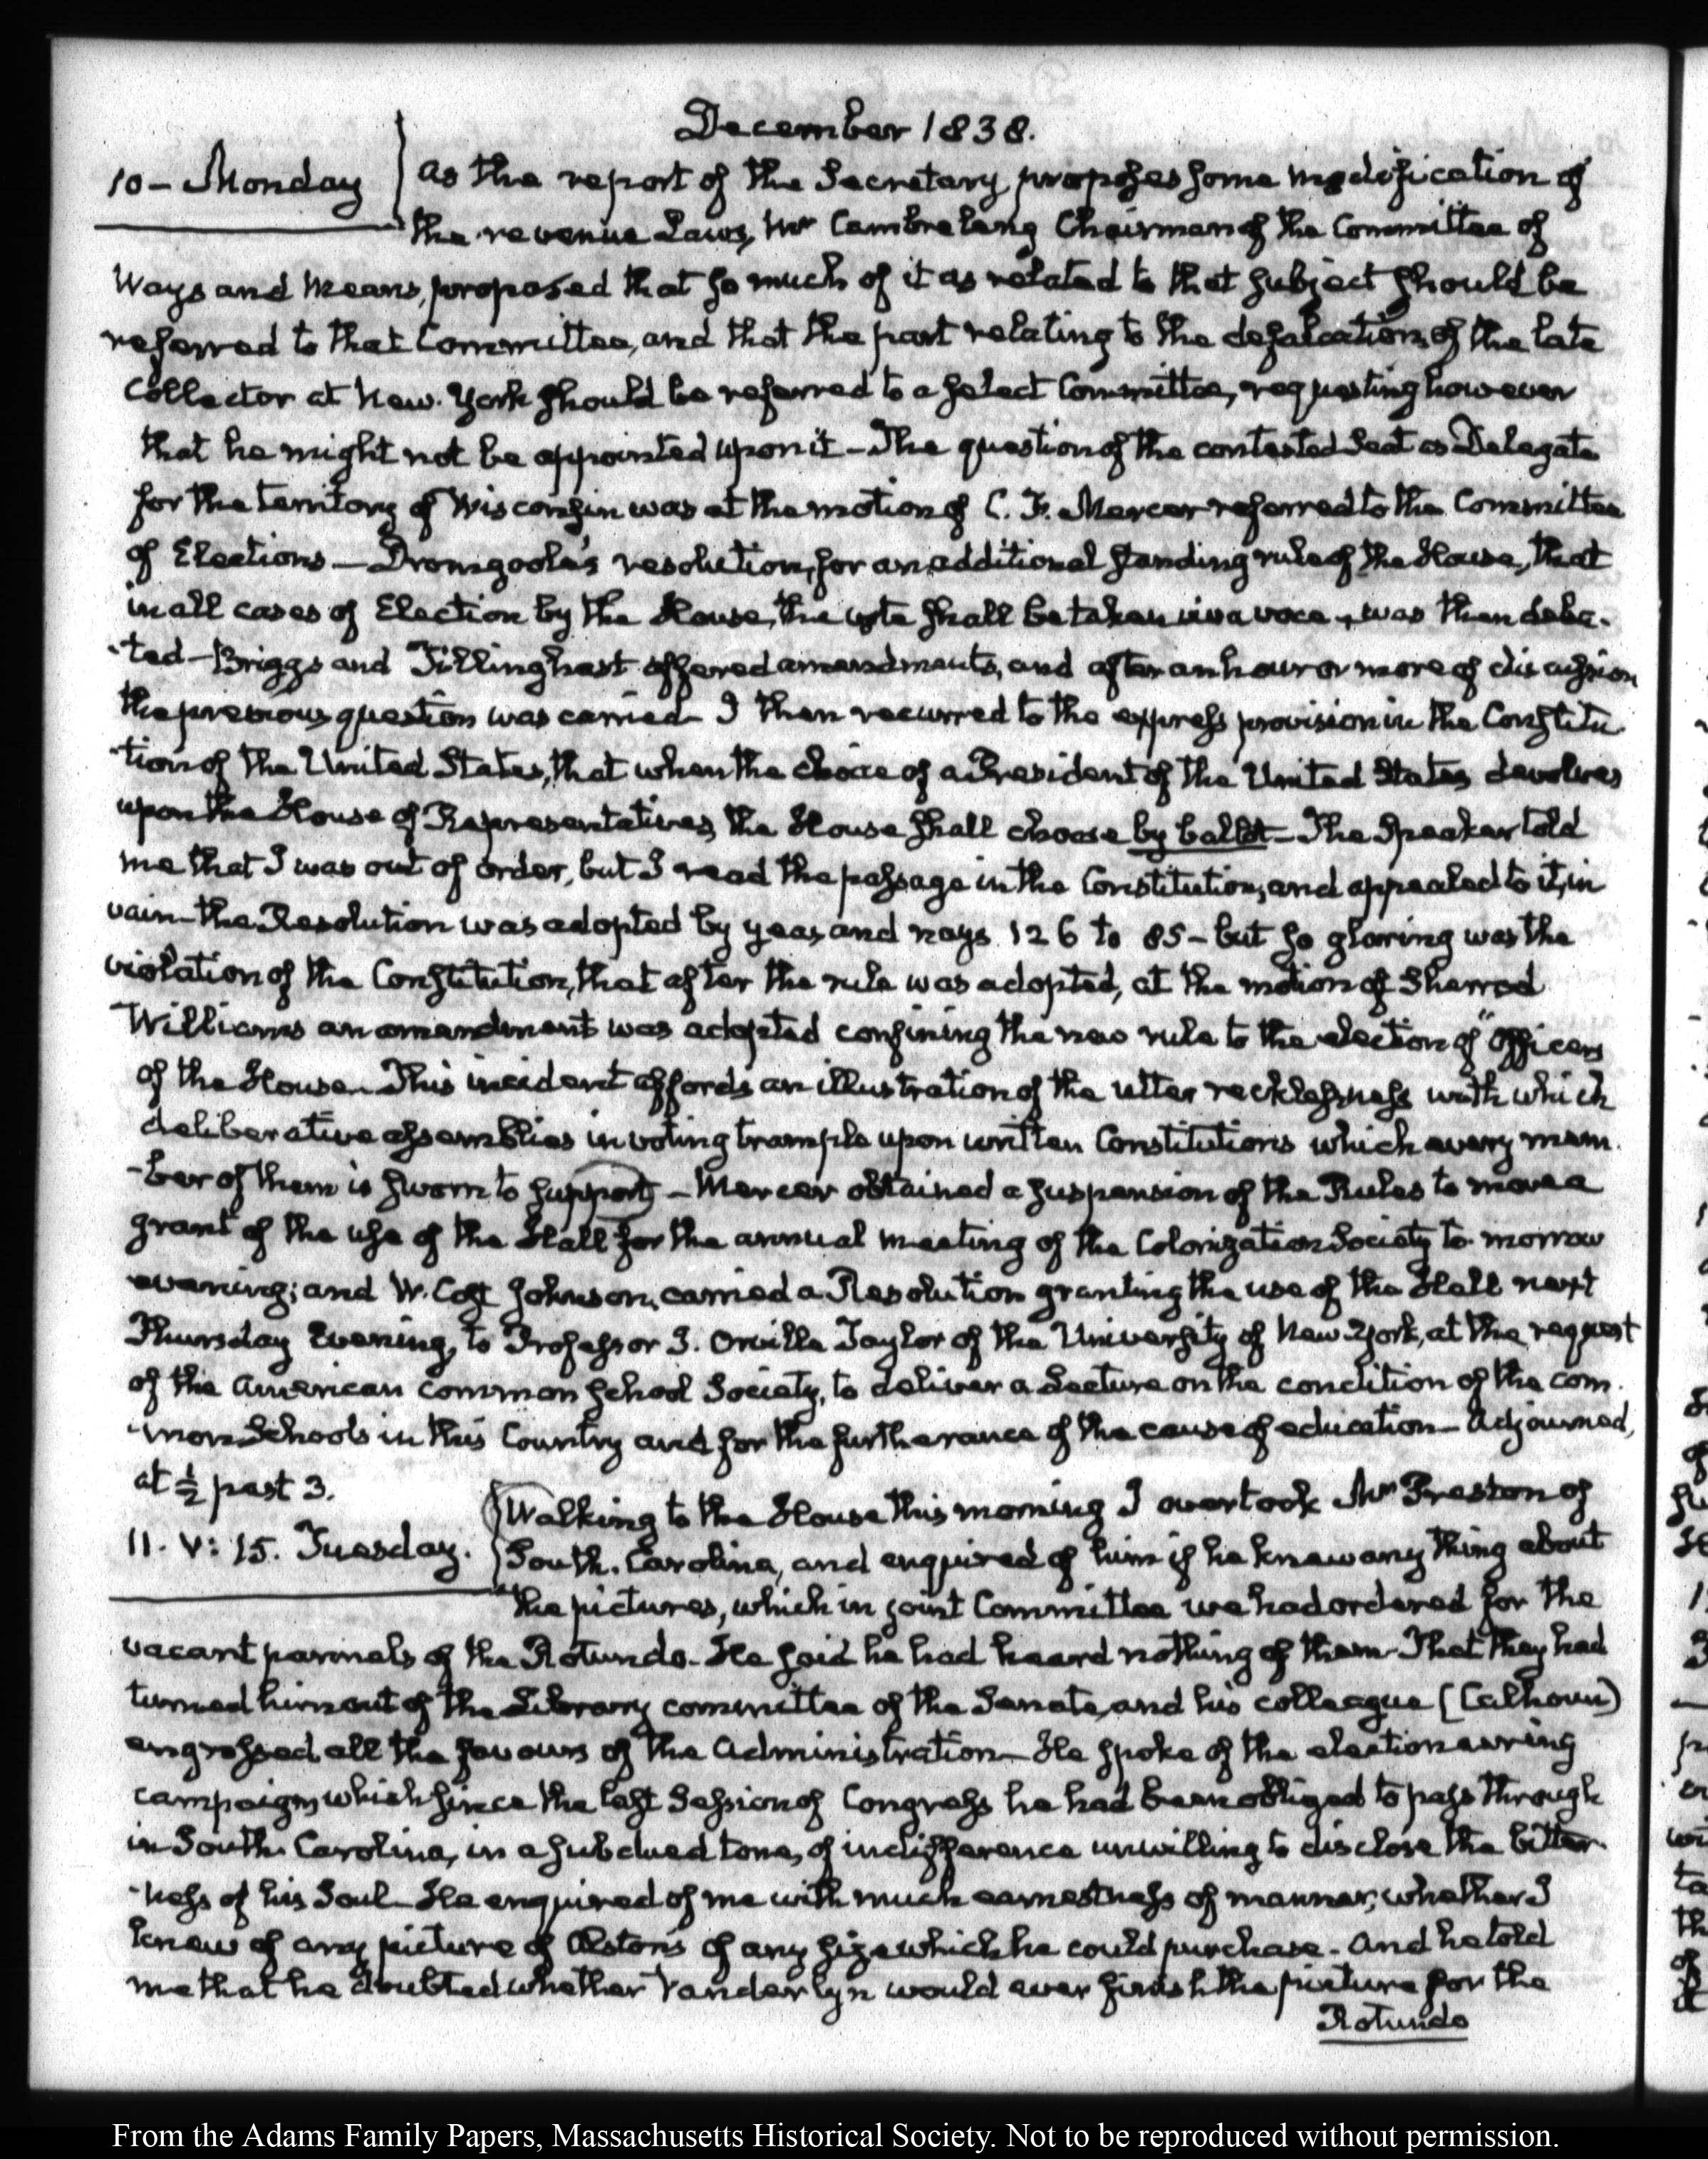 December 1838.
10 - Monday
as the report of the Secretary proposes some modification of
the revenue Laws, Mr Cambreleng Chairman of the Committee of
Ways and Means, proposed that so much of it as related to that subject should be
referred to that Committee, and that the part relating to the defalcation, of the late
Collector at New-York should be referred to a select Committee, requesting however
that he might not be appointed upon it - The question of the contested Seat as Delegate
for the Territory of Wisconsin was at the motion of C. F. Mercer referred to the Committee
of Elections - Dromgoole's resolution, for an additional standing rule of the House, that
in all cases of Election by the House, the vote shall be taken viva voce, was then deba-
-ted - Briggs and Tillinghast offered amendments, and after an hour or more of discussion
the previous question was carried - I then recurred to the express provision in the Constitu-
-tion of the United States, that when the choice of a President of the United States devolves
upon the House of Representatives, the House shall choose by ballot - The Speaker told
me that I was out of order, but I read the passage in the Constitution, and appealed to it, in
vain - the Resolution was adopted by yeas and nays 126 to 85 - but so glaring was the
violation of the Constitution, that after the rule was adopted, at the motion of Sherrod
Williams an amendment was adopted confining the new rule to the election of "Officers
of the House. This incident affords an illustration of the utter recklessness with which
deliberative assemblies in voting trample upon written Constitutions which every mem-
-ber of them is sworn to support - Mercer obtained a suspension of the Rules to move a
grant of the use of the Hall for the annual meeting of the Colonization Society to-morrow
evening; and W. Cost Johnson, carried a Resolution granting the use of the Hall next
Thursday Evening, to Professor J. Orville Taylor of the University of New York, at the request
of the American common School Society, to deliver a Lecture on the condition of the com-
-mon Schools in this Country and for the furtherance of the cause of education - Adjourned,
at ½ past 3.
11. V: 15. Tuesday.
Walking to the House this morning I overtook Mr Preston of
South-Carolina, and enquired of him if he knew any thing about
the pictures, which in joint Committee we had ordered for the
vacant pannels of the Rotundo - He said he had heard nothing of them - That they had
turned him out of the Library committee of the Senate, and his colleague (Calhoun)
engrossed all the favours of the Administration - He spoke of the electioneering
campaign, which since the last Session of Congress he had been obliged to pass through
in South-Carolina, in a subdued tone, of indifference unwilling to disclose the bitter-
-ness of his Soul - He enquired of me with much earnestness of manner, whether I
knew of any picture of Alston's of any size which he could purchase - And he told
me that he doubted whether Vanderlyn would ever finish the picture for the
Rotundo
From the Adams Family Papers, Massachusetts Historical Society. Not to be reproduced without permission.